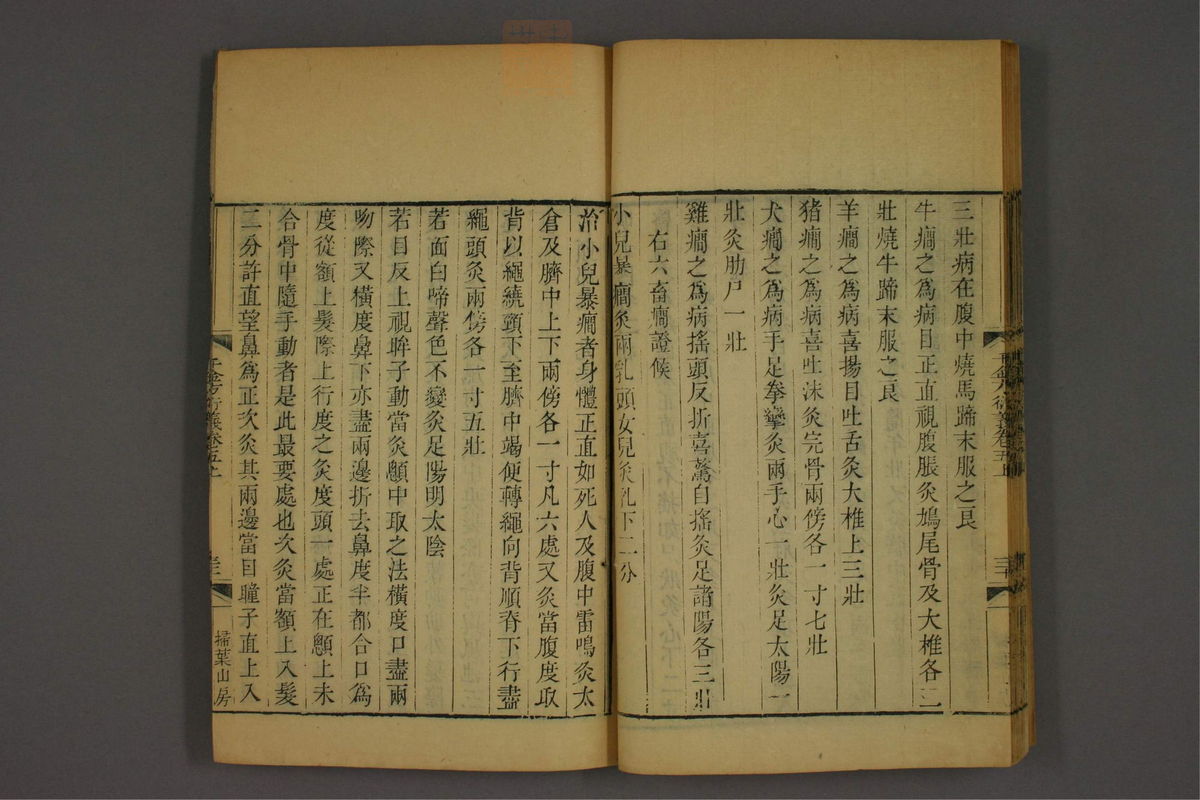 三壯病在腹中燒馬蹄末服之良
牛癎之為病目正直視腹脹灸鳩尾骨及大椎各二
壯燒牛蹄末服之良
羊癎之為病喜揚目吐舌灸大椎上三壯
猪癎之為病喜吐沫灸完骨兩傍各一寸七壯
犬癎之為病手足拳攣灸兩手心一壯灸足太陽一
壯灸肋戸一壯
雞癎之為病搖頭反折喜驚自搖灸足諸陽各三壯
右六畜癎證候
小兒暴癎灸兩乳頭女兒灸乳下二分
治小兒暴癎者身體正直如死人及腹中雷鳴灸太
倉及臍中上下兩傍各一寸凡六處又灸當腹度取
背以繩繞頸下至臍中竭便轉繩向背順脊下行盡
繩頭灸兩傍各一寸五壯
若面白啼聲色不變灸足陽明太陰
若目反上視眸子動當灸顖中取之法橫度口盡兩
吻際又橫度鼻下亦盡兩邊折去鼻度半都合口為
度從額上髮際上行度之灸度頭一處正在顖上未
合骨中隨手動者是此最要處也次灸當額上入髮
二分許直望鼻為正次灸其兩邊當目瞳子直上入
千金方衍義卷五上
掃葉山房